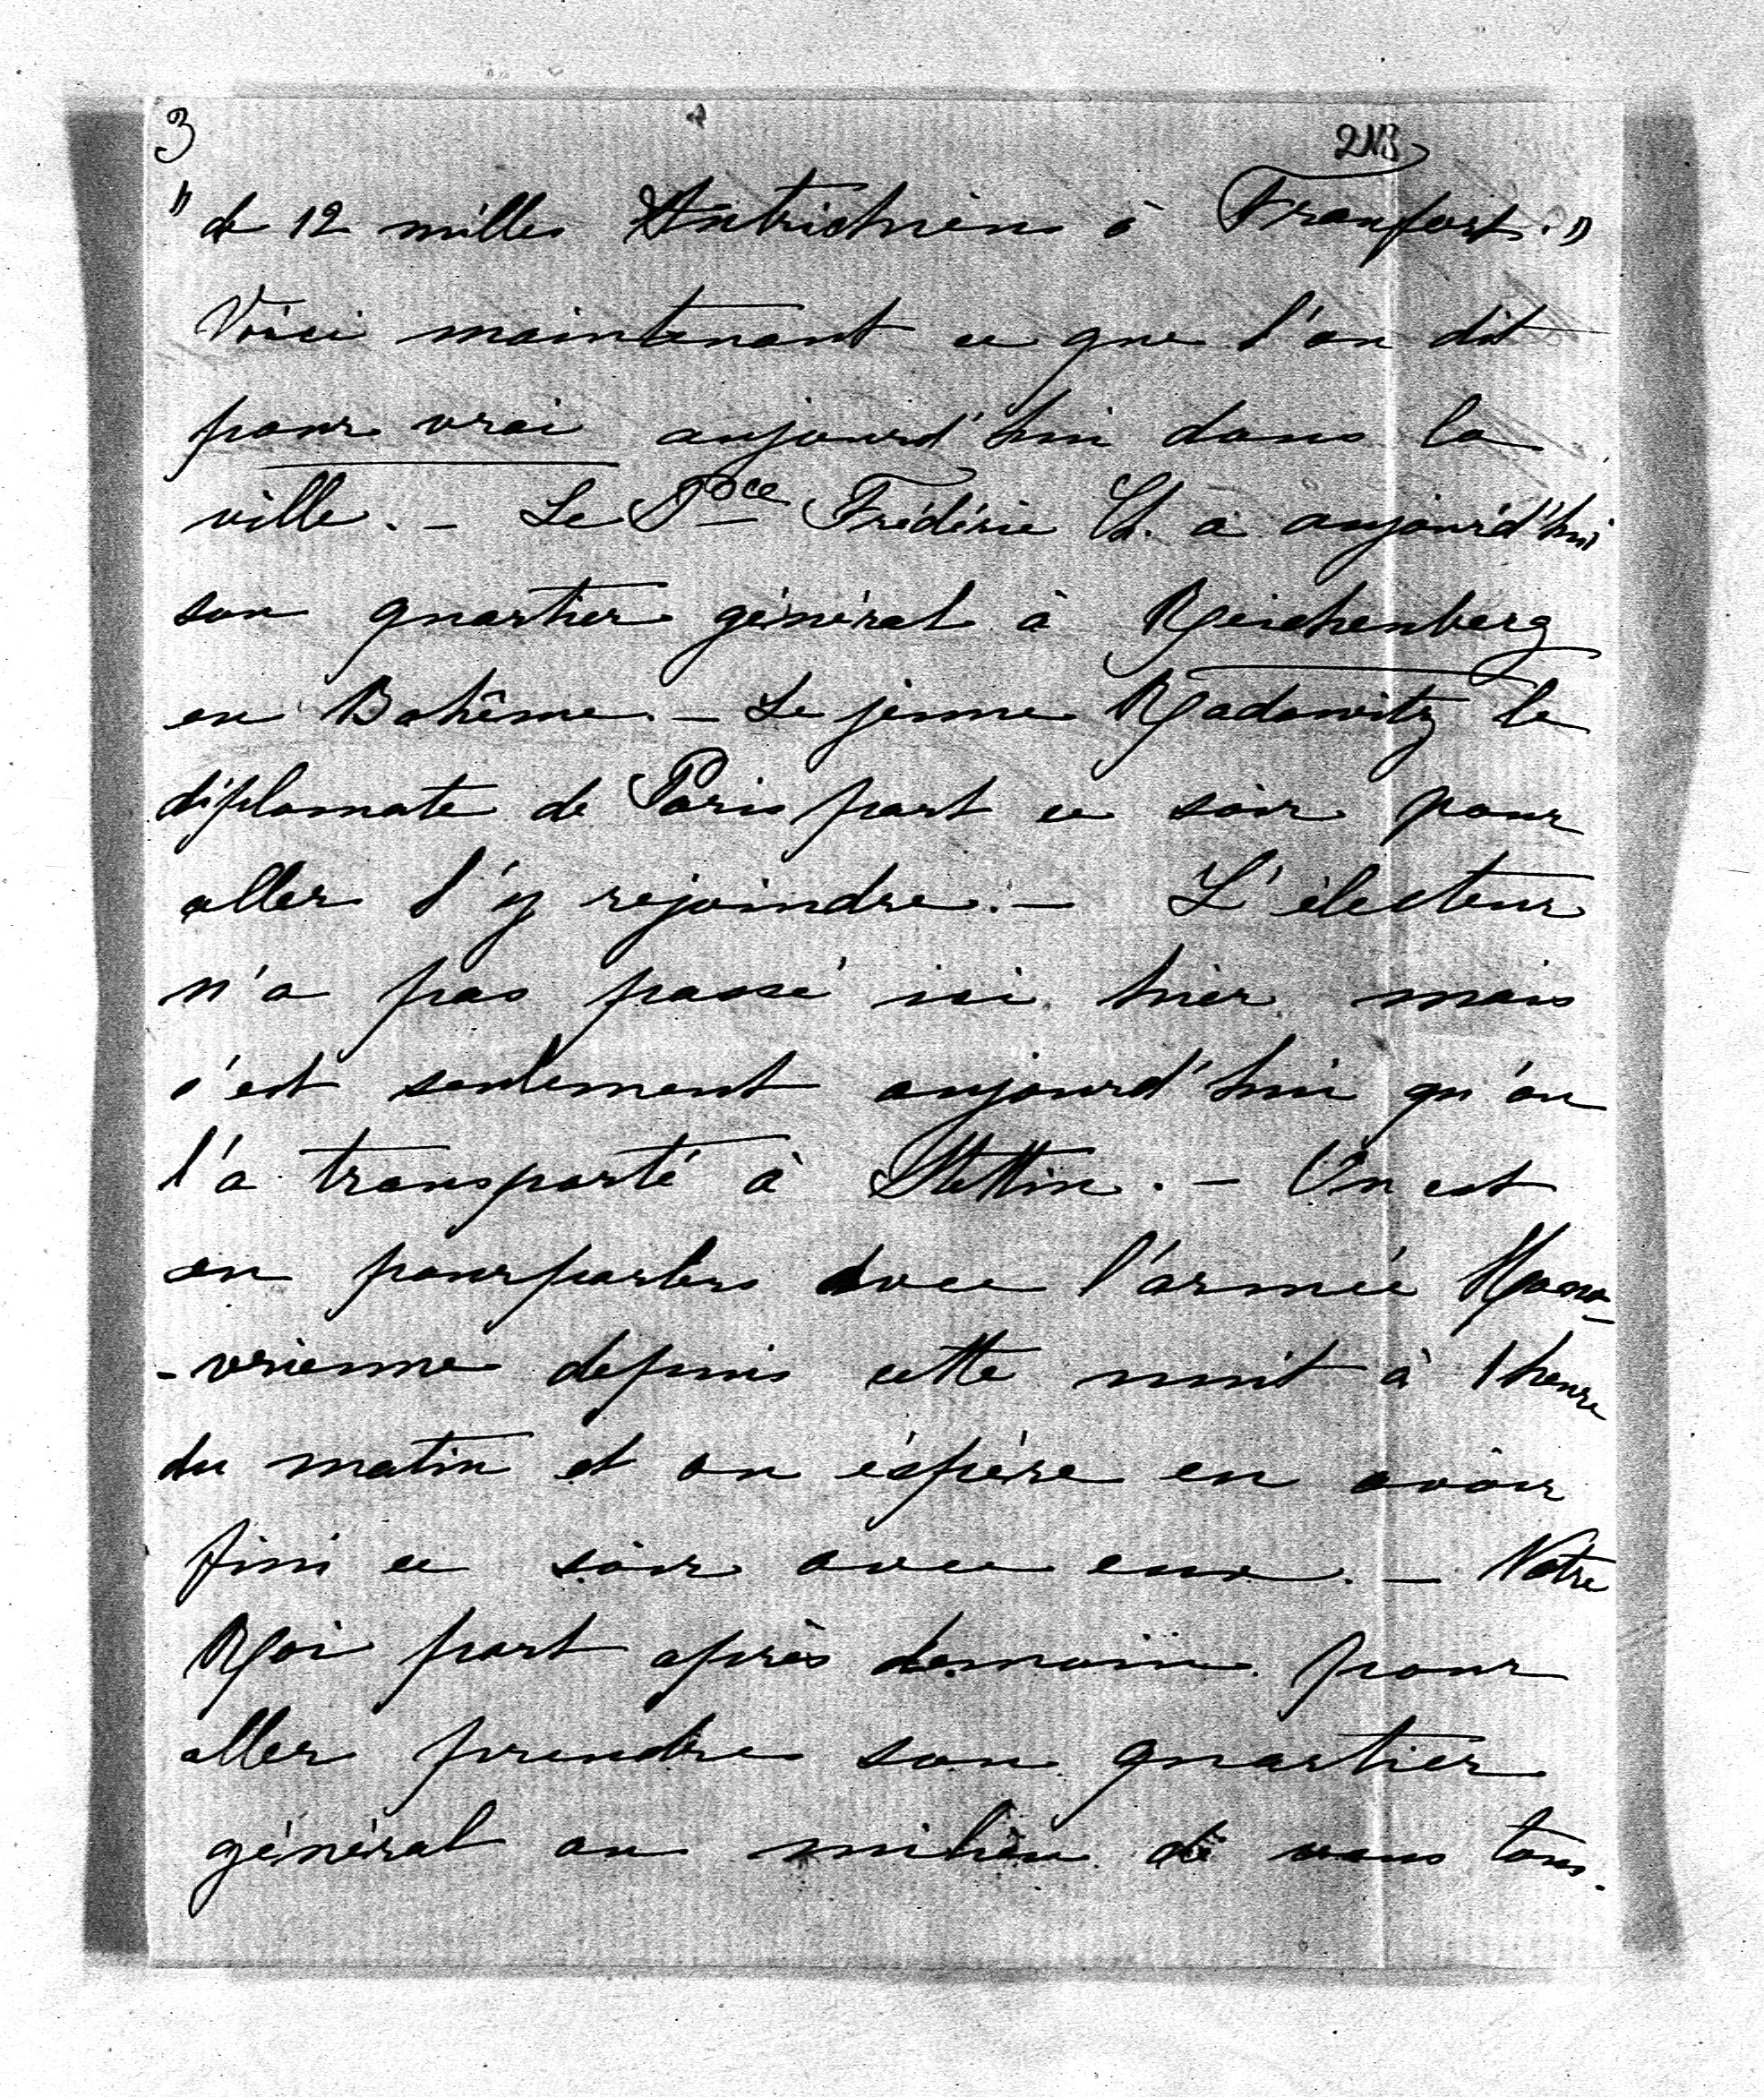 3
213
"de 12 milles Autrichiens à Francfort."
Voici maintenant ce que l'on dit
pour vrai aujourd'hui dans la
ville. – Le Pce Frédéric Ch. a aujourd'hui
son quartier général à Reichenberg
en Bohême. – Le jeune Radowitz le
diplomate de Paris part ce soir pour
aller l'y rejoindre. – L'électeur
n'a pas passé ici hier mais
c'est seulement aujourd'hui qu'on
l'a transporté à Stettin. – On est
en pourparlers avec l'armée Hano-
-vrienne depuis cette nuit à 1 heure
du matin et on éspère en avoir
fini ce soir avec eux. – Notre
Roi part après demain pour
aller prendre son quartier
général au milieu de vous tous.